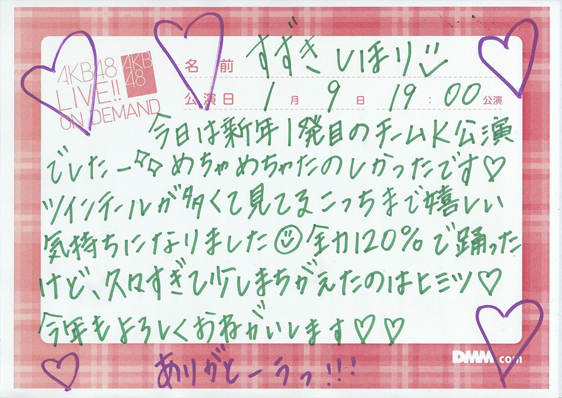 AKB48
LIVE!!
ON DEMAND
AKB
48
名前 すずきしほり
公演日 1月9日 19:00公演
今日は新年1発目のチームK公演
でしたー めちゃめちゃたのしかったです♡
ツインテールが多くて見てるこっちまで嬉しい
気持ちになりました☺全力120%で踊った
けど、久々すぎて少しまちがえたのはヒミツ♡
今年もよろしくおねがいします♡♡
ありがとーうっ!!!
DMM.com